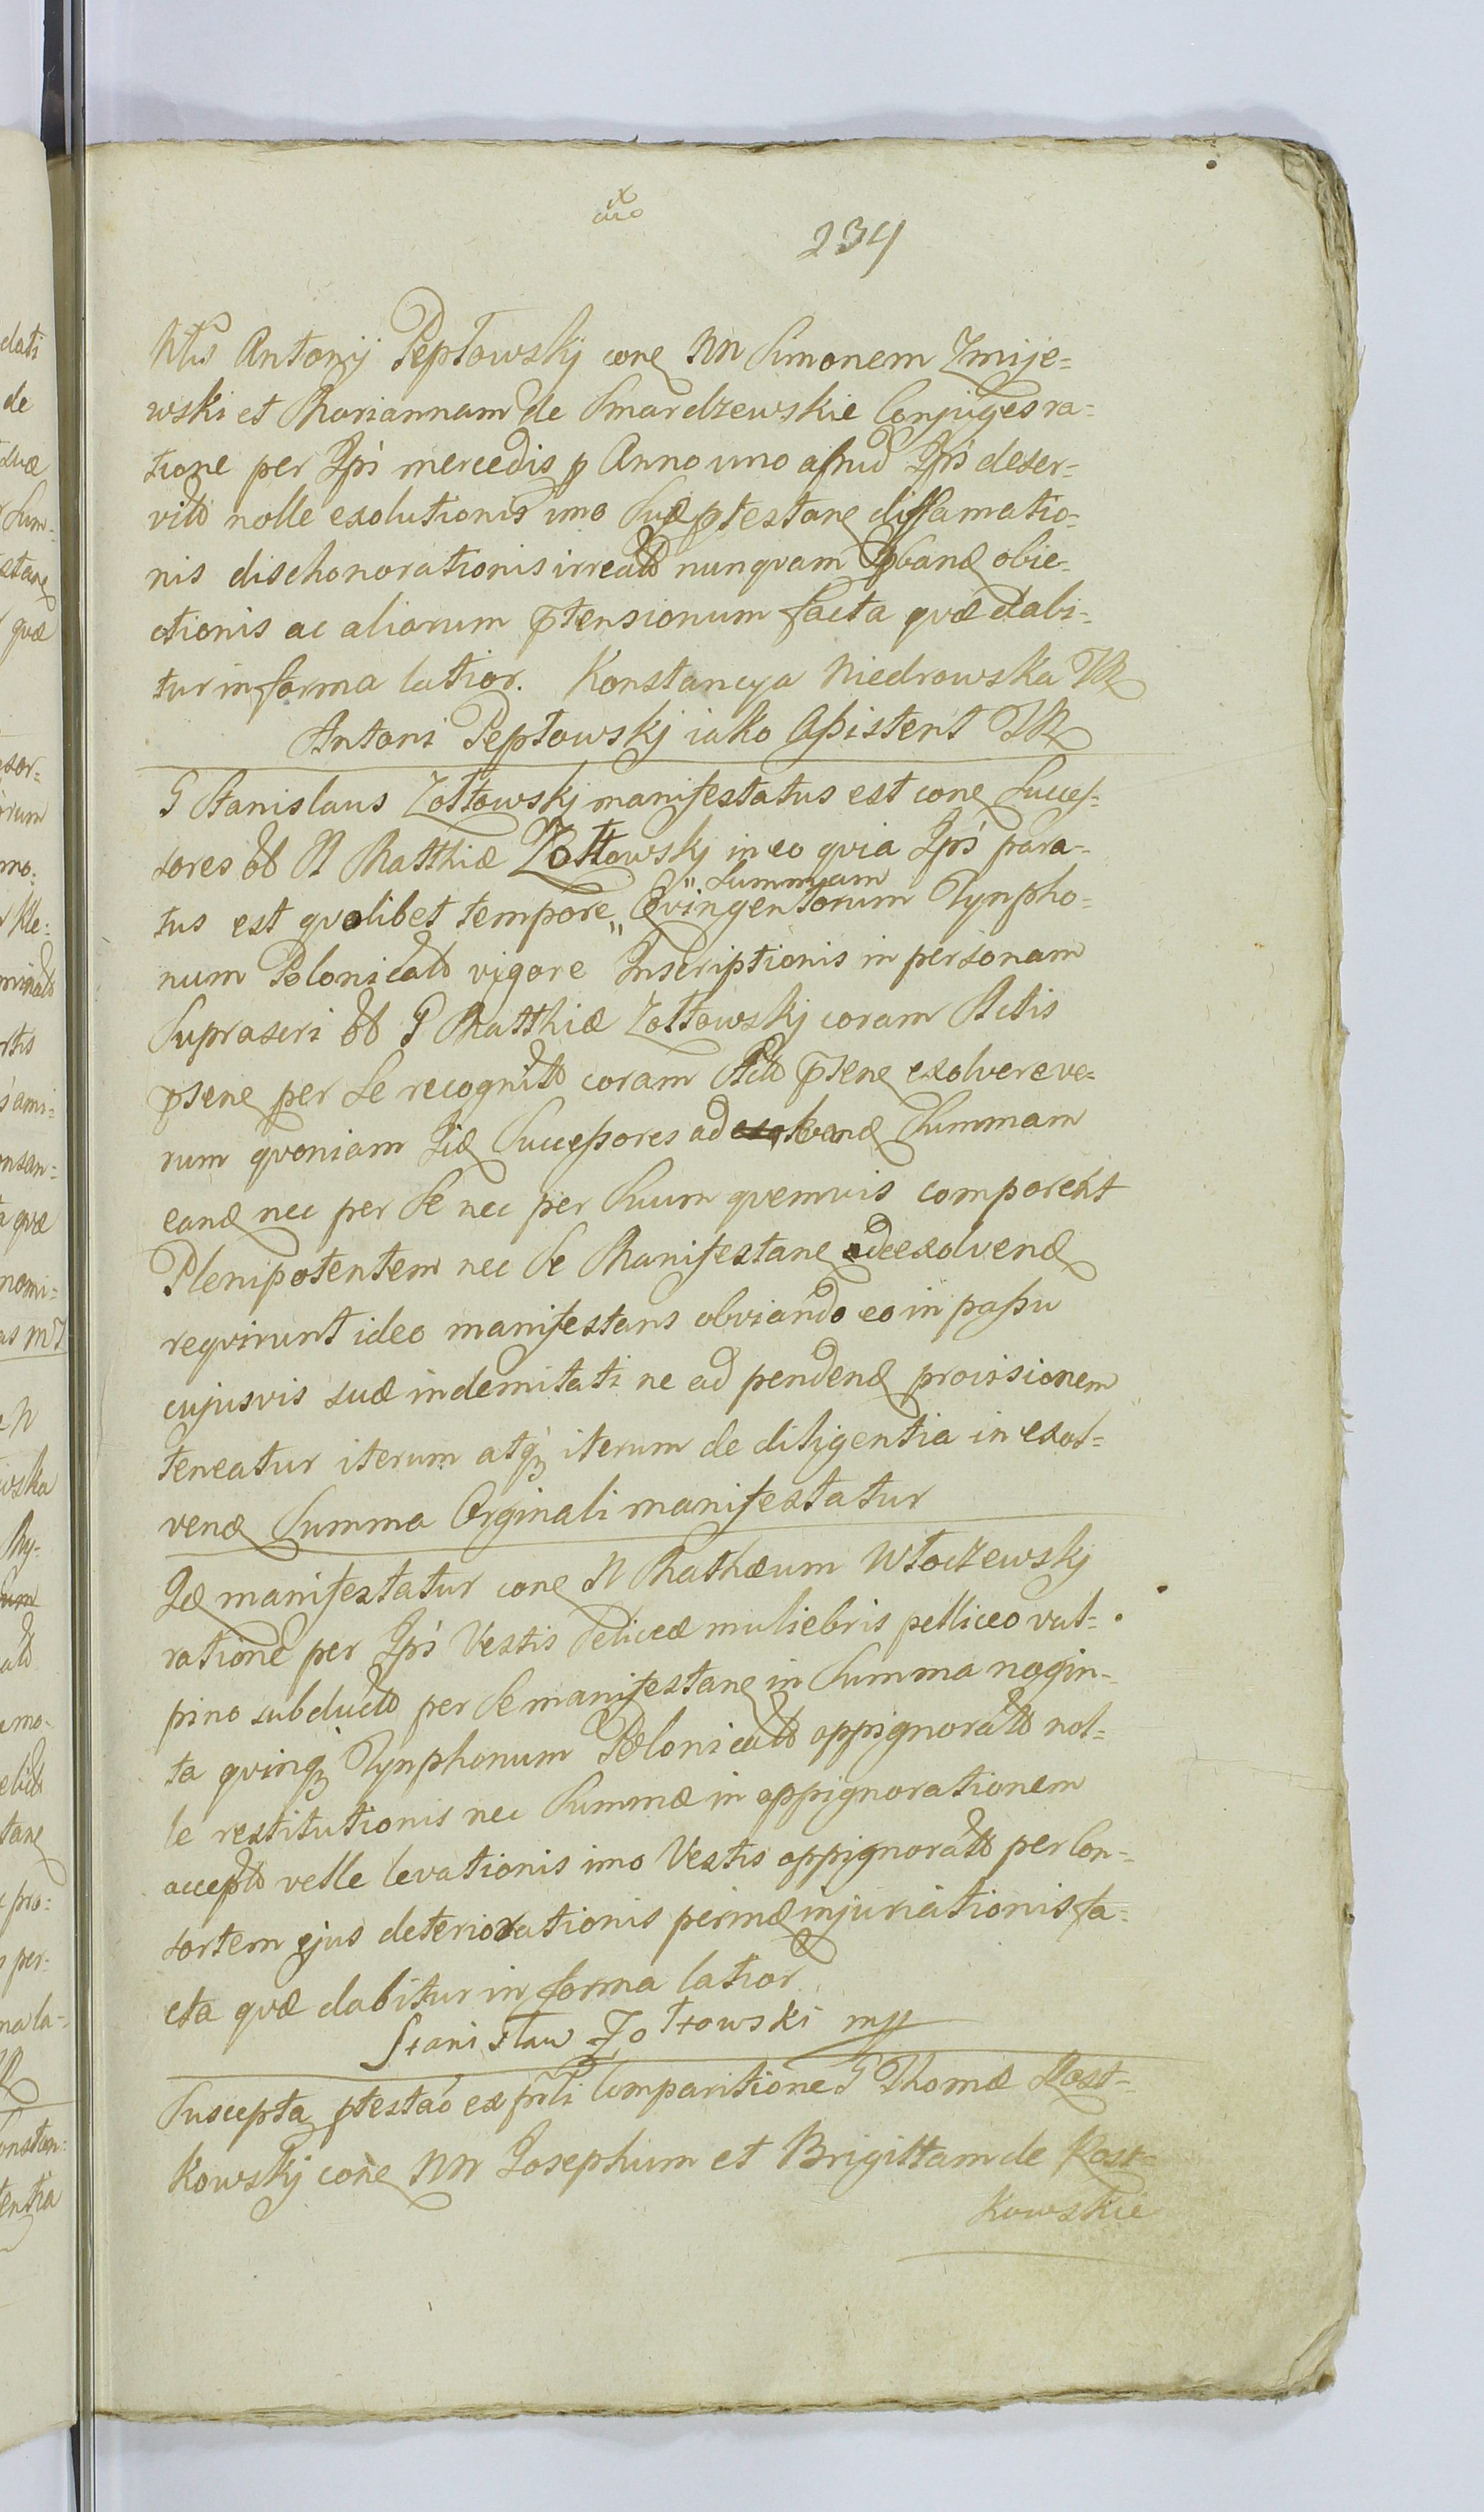 234
Antonij Peptowskj cone NN Simonem Zmije=
wski et Mariannam de Smardzewskie Conjuges ra=
tione per Ipś mercedis p Anno uno apud Ipś deser=
vito nolle exolutionis imo Suæ ptestane diffamatio=
nis dischonorationis irreato nunqvam pband obie=
ctionis ac aliorum ptensionum facta qvæ dabi=
tur in forma latior. Konstancya Niedrowska
Antoni Peptowskj iako Assistent
G Stanislaus Zołtowskj manifestatus est cone Succes=
sores N Matthiæ Zołtowskj in eo qvia Ipś para=
Summam
tus est qvolibet tempore „ Qvingentorum Tynpho=
num Polonicalo vigore Inscriptionis in personam
Suprascri G Matthiæ Zołtowskj coram Actis
psene per Se recognito coram Acto psene exolvere ve=
rum qvoniam Iid Successores ad Summam
eand nec per Se nec per Suum qvemvis comparent
Plenipotentem nec Se Manifestane ad exolvend
reqvirunt ideo manifestans obviando eo in passu
cujusvis suæ indemitati ne ad pendend provisionem
teneatur iterum atq iterum de diligentia in exol=
vend Summa Orginali manifestatur
Id manifestatur cone N Mathæum Włoczewskj
ratione per Ipś Vestis Peliceæ muliebris pelliceo vul=
pino subducto per Se manifestane in Summa nagin=
ta qvinq Tynphonum Polonicalo oppignorato nol=
le restitutionis nec Summæ in oppignorationem
accepto velle levationis imo Vestis oppignorato per Con=
sortem ejus deteriorationis perind injuriationis fa=
cta qvæ dabitur in forma latior
Stanisław Zołtowski mp
Suscepta ptestaó ex pńli Comparitione G Thomæ Rost=
kowskj cone NN Josephum et Brigittam de Rost=
kowskie